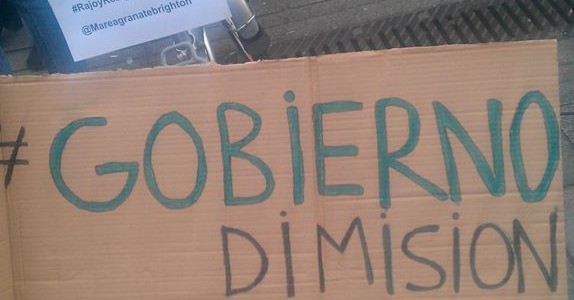 @Mareagranatebrighton
#GOBiERNO
DiMiSiON